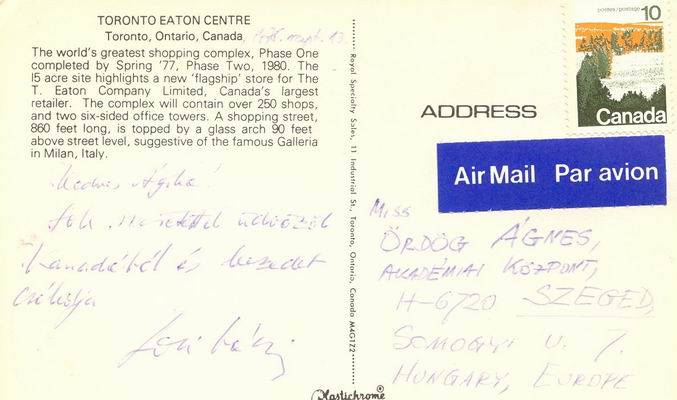 TORONTO EATON CENTRE
Toronto, Ontario, Canada,
The world's greatest shopping complex, Phase One
completed by Spring '77, Phase Two, 1980. The
15 acre site highlights a new 'flagship' store for The
T. Eaton Company Limited, Canada's largest
retailer. The complex will contain over 250 shops,
and two six-sided office towers. A shopping street,
860 feet long, is topped by a glass arch 90 feet
above street level, suggestive of the famous Galleria
in Milan, Italy.
Kedves Ágika!
Sok szeretettel üdvözöl
Kanadából és kezedet
csókolja
Royal Specialty Sales, 11 Industrial St., Toronto, Ontario, Canada M4G1Z2
Plastichrome®
postes/postage 10
Canada
ADDRESS
Air Mail Par avion
MISS
ÖRDÖG ÁGNES,
AKADÉMIAI KÖZPONT,
H-6720 SZEGED,
SOMOGYI U. 7.
HUNGARY, EUROPE